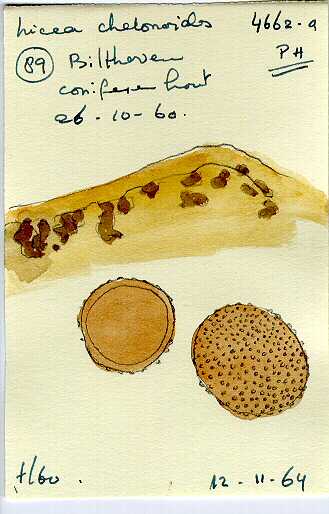 Licea chelonoides 4662-a
89 Bilthoven PH
coniferen hout
26-10-60.
t/60. 12-11-64